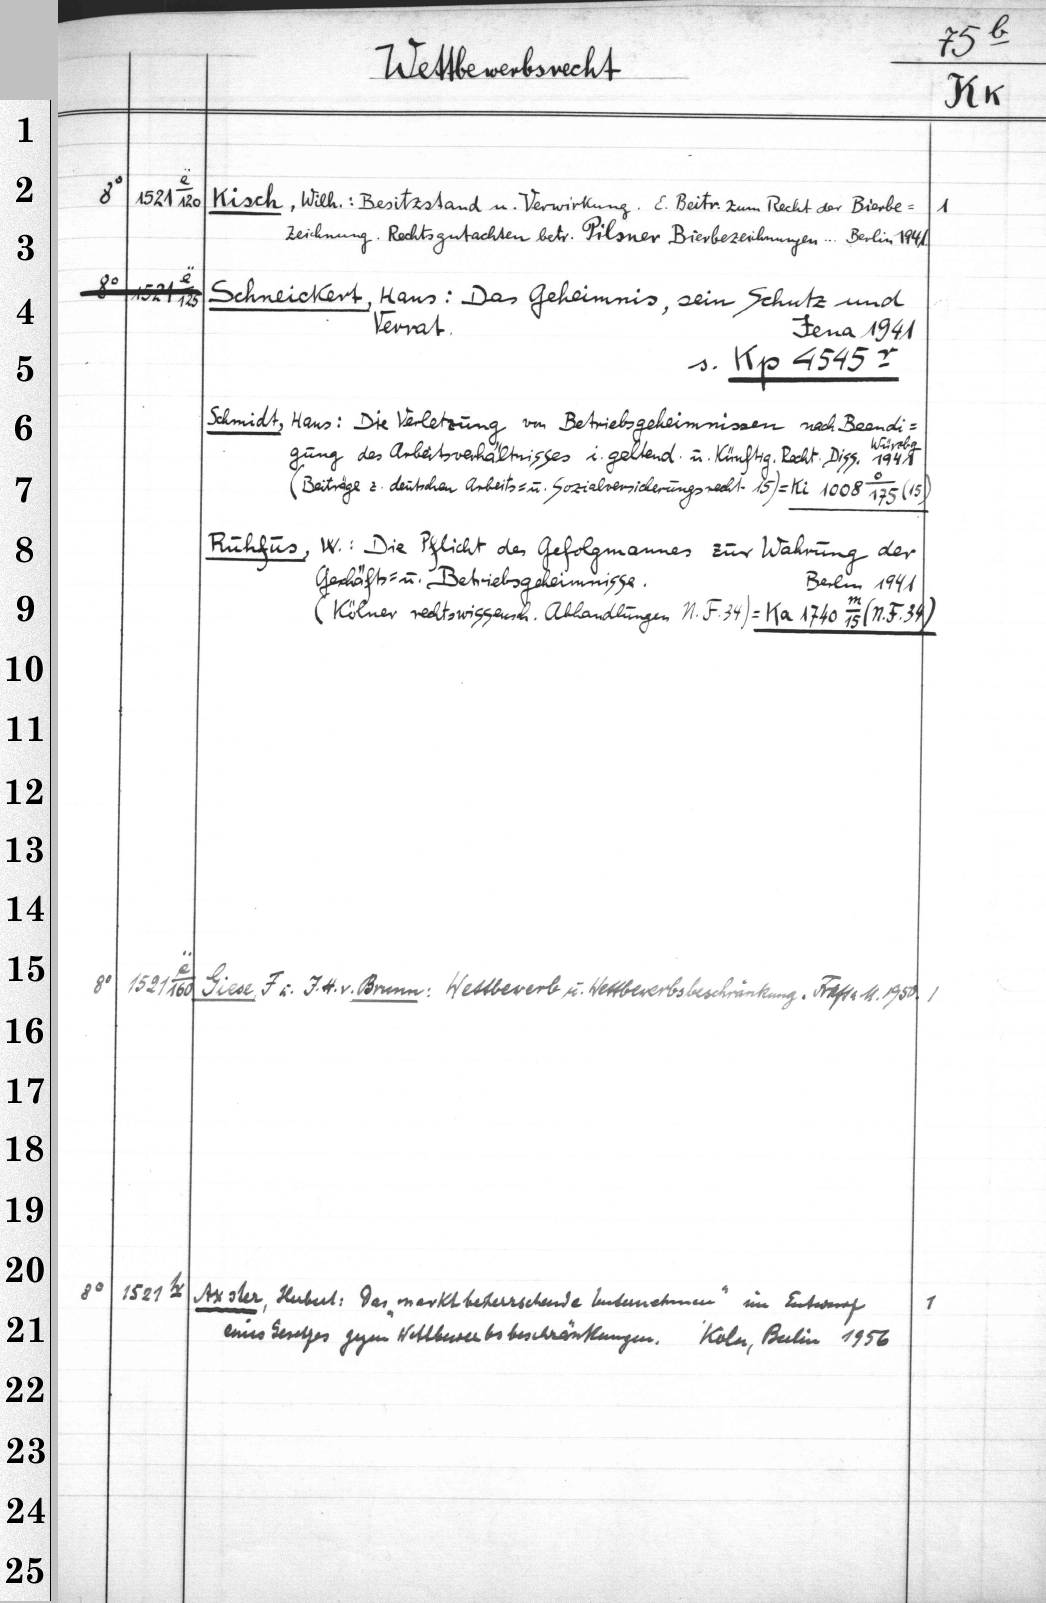 75 b
Wettbewerbsrecht
Kk
1
2
3
4
5
6
7
8
9
10
11
12
13
14
15
16
17
18
19
20
21
22
23
24
25
8° 1521 ë/120 Kisch, Wilh.: Besitzstand u. Verwirkung. E. Beitr. zum Recht der Bierbe= 1
zeichnung. Rechtsgutachten betr. Pilsner Bierbezeichnungen ... Berlin 1941
8° 1521 ë/125 Schneickert, Hans: Das Geheimnis, sein Schutz und
Verrat. Jena 1941
s. Kp 4545 r
Schmidt, Hans: Die Verletzung von Betriebsgeheimnissen nach Beendi=
gung des Arbeitsverhältnisses i. geltend. u. künftig. Recht. Diss. Würzbg 1941
(Beiträge z. deutschen Arbeits= u. Sozialversicherungsrecht 15) = Ki 1008 o/175 (15)
Ruhfus, W.: Die Pflicht des Gefolgmannes zur Wahrung der
Geschäfts= u. Betriebsgeheimnisse. Berlin 1941
(Kölner rechtswissensch. Abhandlungen N. F. 34) = Ka 1740 m/15 (N.F. 34)
8° 1521 ë/160 Giese, F. u. J. H. v. Brunn: Wettbewerb u. Wettbewerbsbeschränkung. 1950. 1
8° 1521 Axster, Herbert: Das "marktbeherrschende Unternehmen" im Entwurf 1
eines Gesetzes gegen Wettbewerbsbeschränkungen. Köln, Berlin 1956